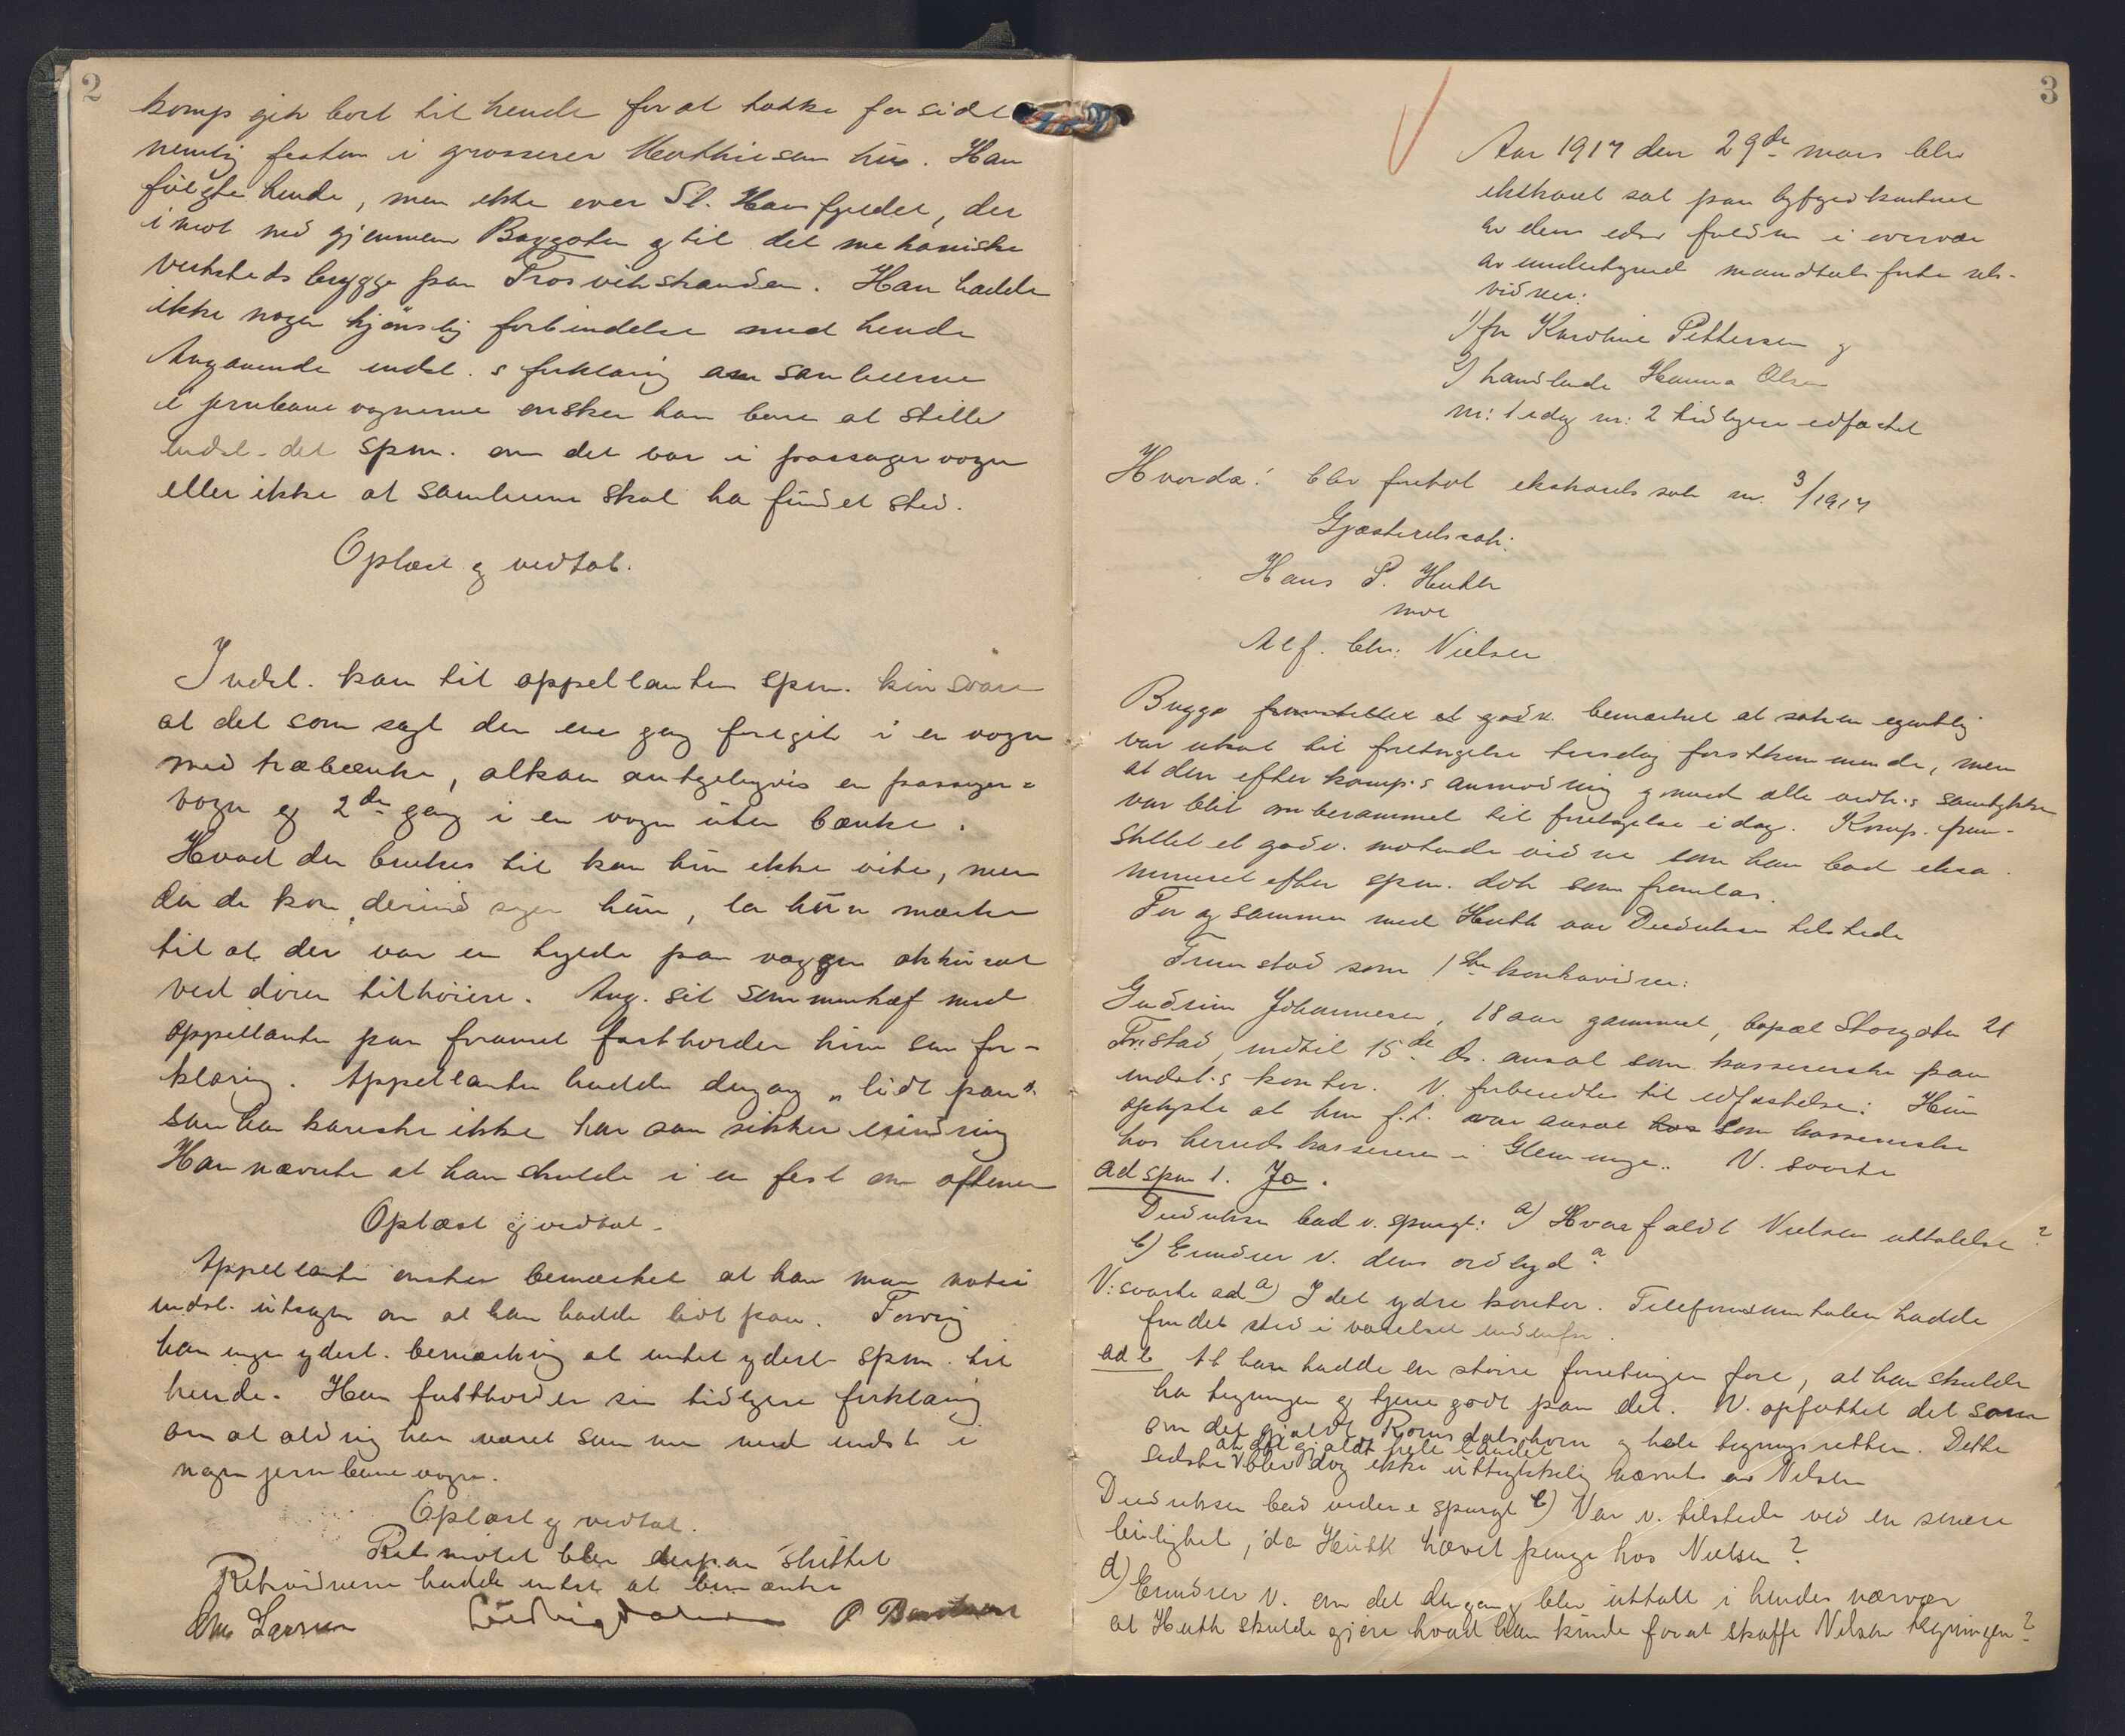 2
komp gik bort til hende for at takke for sidst
nemlig festen i grosserer Mathiesens hus. Han
fulgte hende, men ikke over St. Hansfjeldet, der
imot ned gjennem Baggaten og til det mekaniske
verksteds brygge paa Trosvikstranden. Han hadde
ikke nogen kjønslig forbindelse med hende
Angaaende indst.s forklaring om samleierne
i jernbanevognerne ønsker han bare at stille
indst. det spm. om det var i passagervogn
eller ikke at samleierne skal ha fundet sted.
Oplæst og vedtat.
Indst. kan til appellantens spm. kun svare
at det som sagt den ene gang foregik i en vogn
med træbænke, altsaa antageligvis en passager-
vogn og 2den gang i en vogn uten bænke.
Hvad den brukes til kan hun ikke vite, men
da de kom derind siger hun, la hun mærke
til at der var en hylde paa væggen akkurat
ved døren tilhøire. Ang. sit sammentræf med
appellanten paa foraaret fastholder hun sin for-
klaring. Appellanten hadde dengang „lidt paa"
saa han kanske ikke har saa sikker erindring
Han nævnte at han skulde i en fest om aftenen
Oplæst og vedtat.
Appellanten ønsker bemærket at han maa notere
indst. utsagn om at han hadde lidt paa. Forøvrig
har ingen yderl. bemærkning at intet yderl. spm. til
hende. Han fastholder sin tidligere forklaring
om at aldrig han været sammen med indst. i
nogen jernbanevogn.
Oplæst og vedtat.
Retsmøtet blev derpaa sluttet
Retsvidnerne hadde intet at bemærke
Chr Larsen O Berntsen
3
Aar 1917 den 29de mars blev
ekstraret sat paa byfogedkontoret
av dens edsv. fuldm. i overvær
av undertegnede mandtalsførte rets-
vidner:
1) fru Karoline Pettersen og
2) handlende Hanna Olsen
nr: 1 idag nr: 2 tidligere edfæstet
Hvorda: blev foretat ekstraretssak nr. 3/1917
Gjæsteretssak:
Hans P. Huth
mot
Alf. Chr. Nielsen
Bugge fremstillet et godv. bemærket at saken egentlig
var utsat til foretagelse tirsdag førstkommende, men
at den efter komp.s anmodning og med alle vedk.s samtykke
var blit omberammet til foretagelse idag. Komp. frem-
stillet et godv. møtende vidne som han bad eksa-
mineret efter spm. dok som fremlas.
For og sammen med Huth var Diedriksen tilstede
Fremstod som 1ste kontravidne:
Gudrun Johannesen, 18 aar gammel, bopæl Storgaten 21
Fr.stad, indtil 15de ds. ansat som kassererske paa
indst.s kontor. V. forberedtes til edfæstelse: Hun
oplyste at hun f.t. var ansat hos som kassererske
hos herredskassereren i Glemminge. V. svarte
ad spm 1. Ja.
Diedriksen bad v. spurgt: a) Hvor faldt Nielsens uttalelse?
b) Erindrer v. dens ordlyd?
V: svarte ad a) I det ydre kontor. Telefonsamtalen hadde
fundet sted i værelset indenfor.
ad b At han hadde en større forretning fore, at han skulde
ha tegningen og tjene godt paa det. V. opfattet det som
om det gjaldt Romsdalshorn og hele tegningsretten. Dette
at det gjaldt hele landet
sidste v blev dog ikke uttrykkelig nævnt av Nielsen
Diedriksen bad videre spurgt c) Var v. tilstede ved en senere
leilighet, da Huth hævet penge hos Nielsen?
d) Erindrer v. om det dengang blev uttalt i hendes nærvær
at Huth skulde gjøre hvad han kunde for at skaffe Nielsen tegningen?